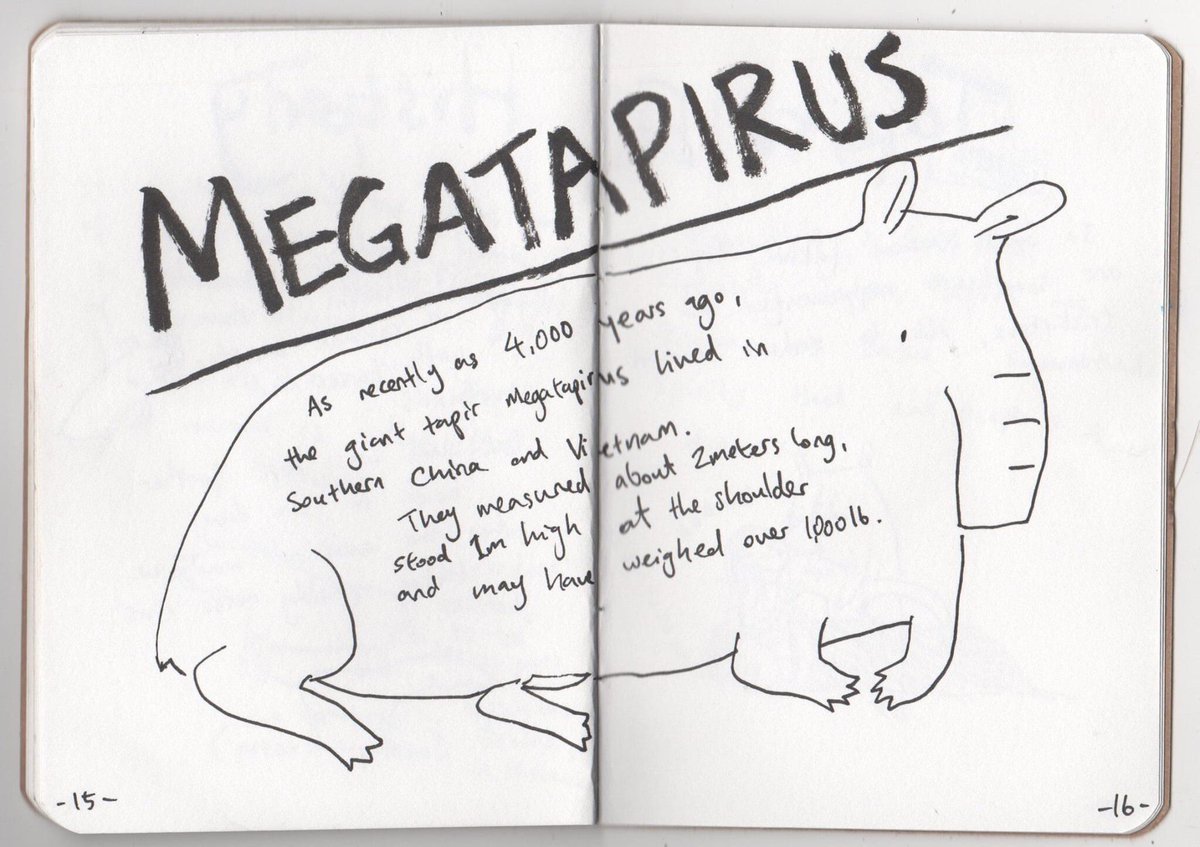 MEGATAPIRUS
As recently as 4,000 years ago,
the giant tapir Megatapirus lived in
Southern China and Vietnam.
They measured about 2meters long,
stood 1m high at the shoulder
and may have weighed over 1,000lb.
-15-
-16-